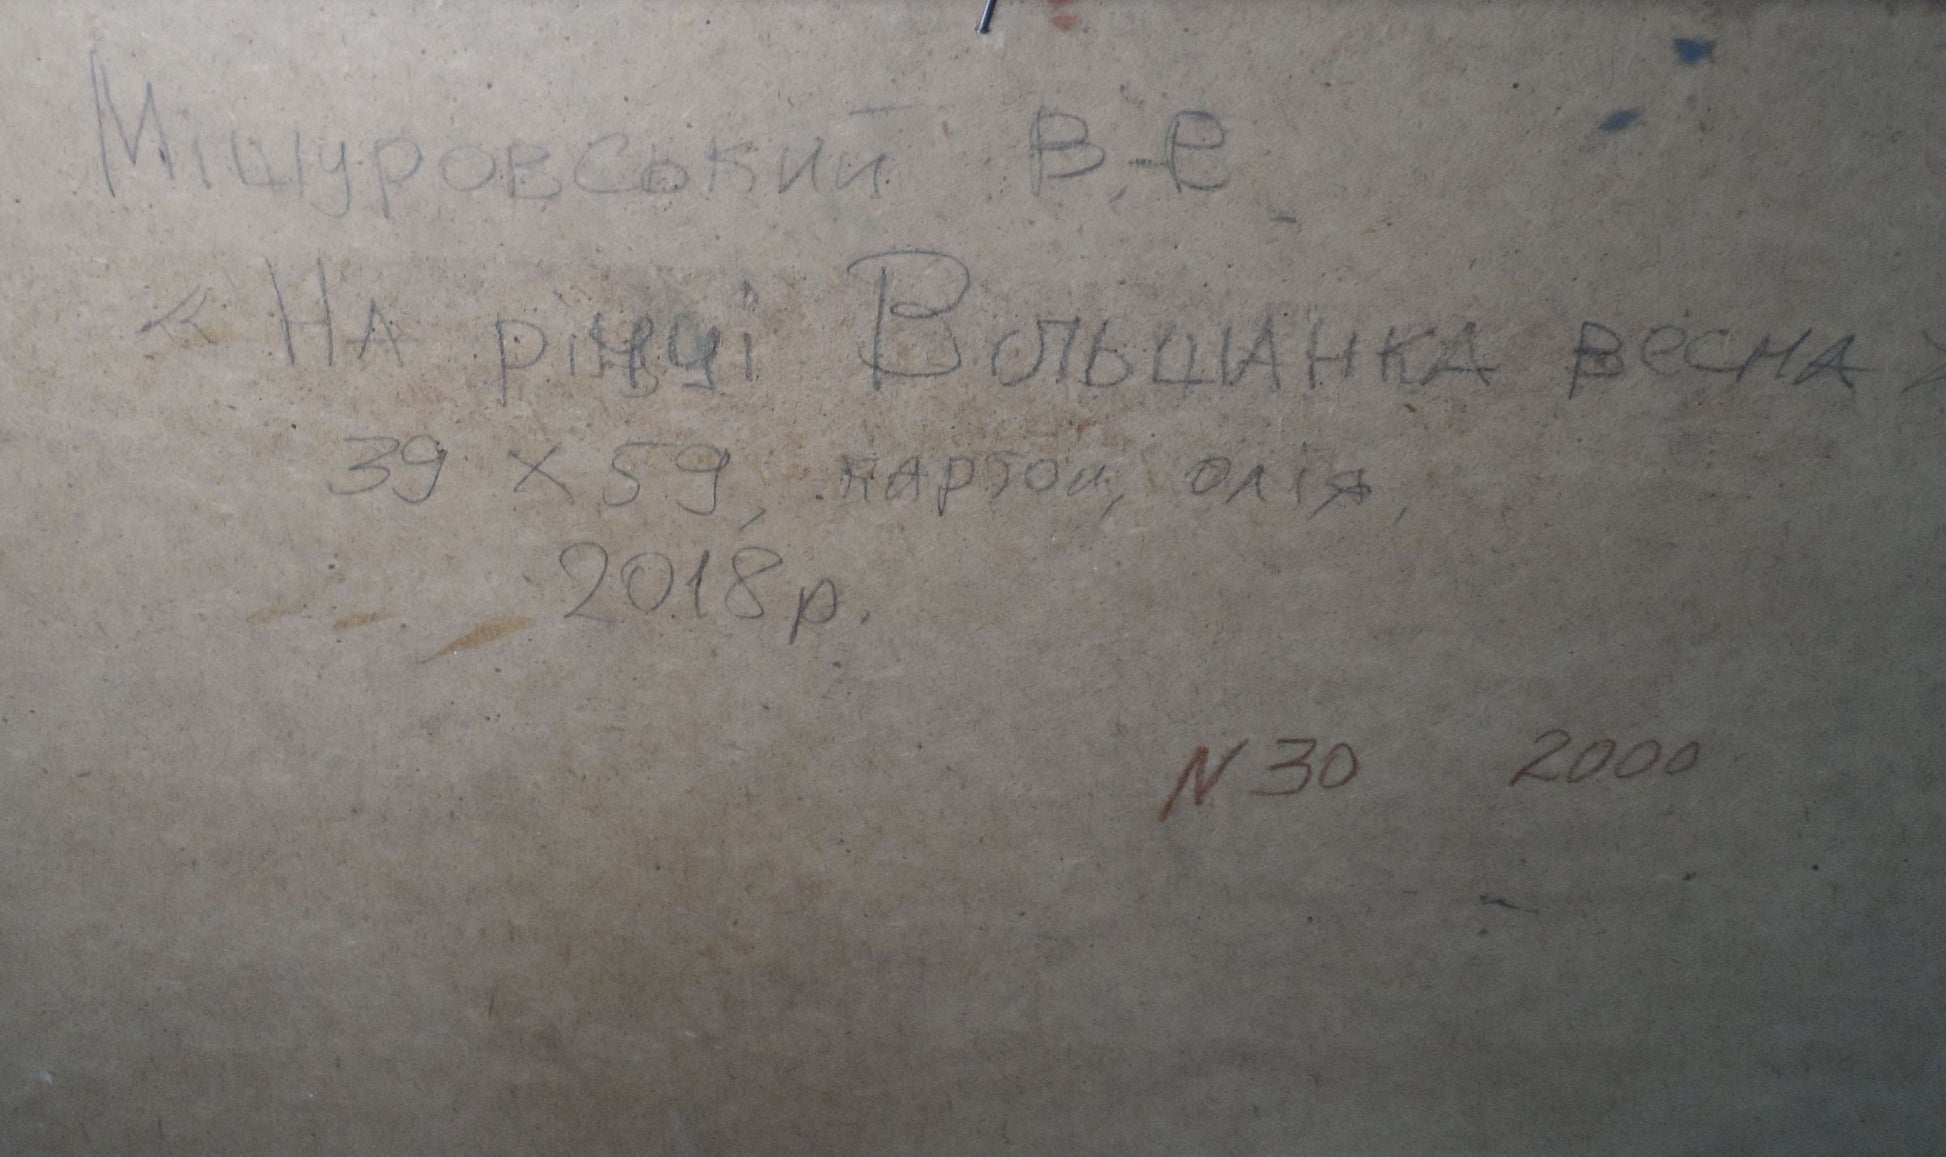 Мішуровський В.Є.
«На річці Вольшанка весна»
39 х 59, картон, олія,
2018 р.
N 30 2000